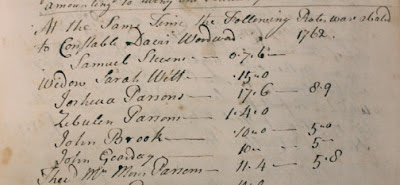 amounting to
At the Same Time the Following Rate was
to Constable David Woodward 1762
Samuel Stevens — 0.7.6 —
Widow Sarah Witt — .15.0
Joshua Parsons — 17.6 — 8.9
Zebulen Parsons — 1.4.0
John Brook — 10.0 — 5.0
John — 10 — 5
Mr Moses Parsons — 11.4 — 5.8